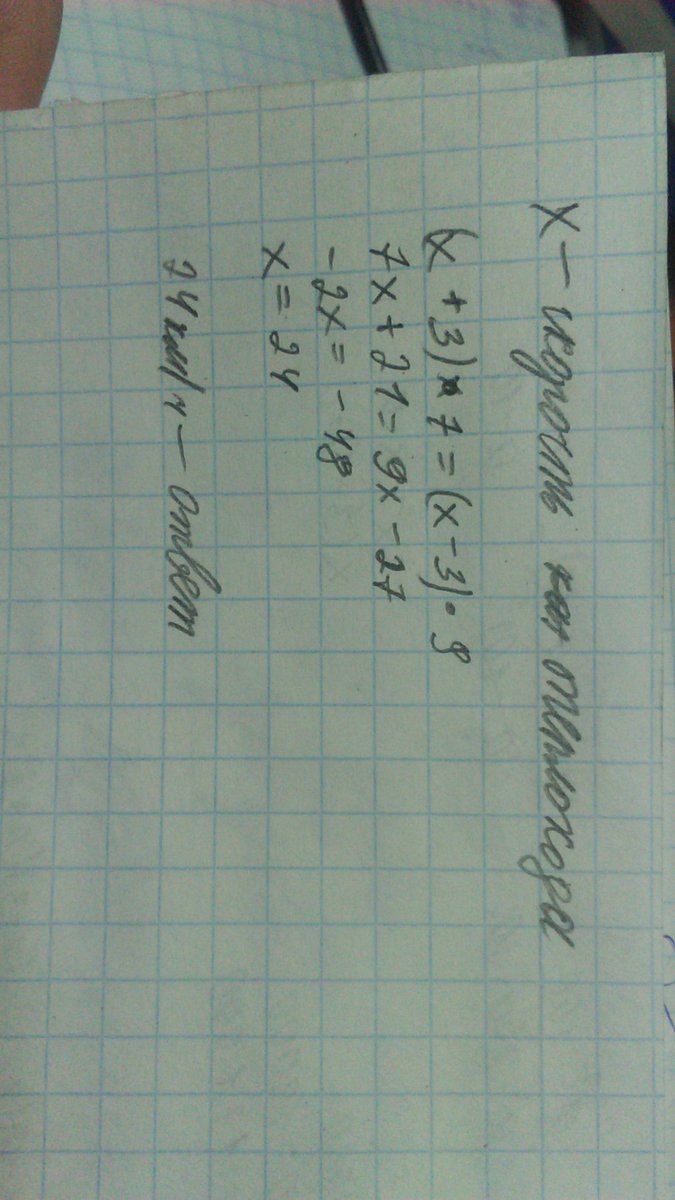 x – скорость теплохода
(x + 3) · 7 = (x – 3) · 9
7x + 21 = 9x – 27
– 2x = – 48
x = 24
24 км/ч – ответ